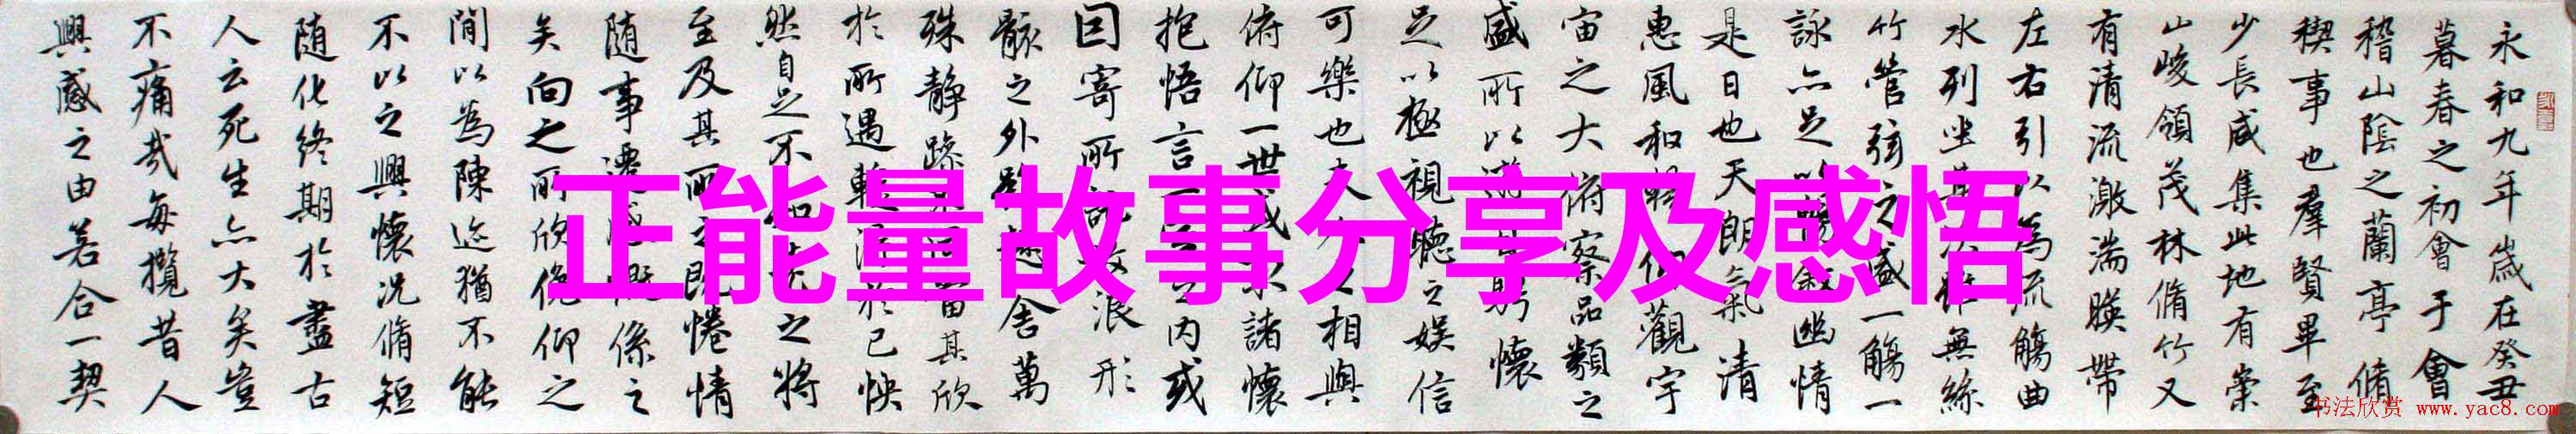 永和九年歲在癸丑
暮春之初會于會
稽山陰之蘭亭脩
稧事也羣賢畢至
少長咸集此地有崇
山峻領茂林脩竹又
有清流激湍暎帶
左右引以為流觴曲
水列坐其次雖無絲
竹管弦之盛一觴一
詠亦足以暢敘幽情
是日也天朗氣清
惠風和暢仰觀宇
宙之大俯察品類之
盛所以遊目騁懷
足以極視聽之娛信
可樂也夫人之相與
俯仰一世或取諸懷
抱悟言一室之內或
因寄所託放浪形
骸之外雖趣舍萬
殊靜躁不同當其欣
於所遇暫得於己怏
然自足不知老之將
至及其所之既惓情
隨事遷感慨係之
矣向之所欣俛仰之
閒以為陳迹猶不能
不以之興懷況脩短
隨化終期於盡古
人云死生亦大矣豈
不痛哉每攬昔人
興感之由若合一契
正能量故事分享及感悟
书法欣赏 www.yac8.com